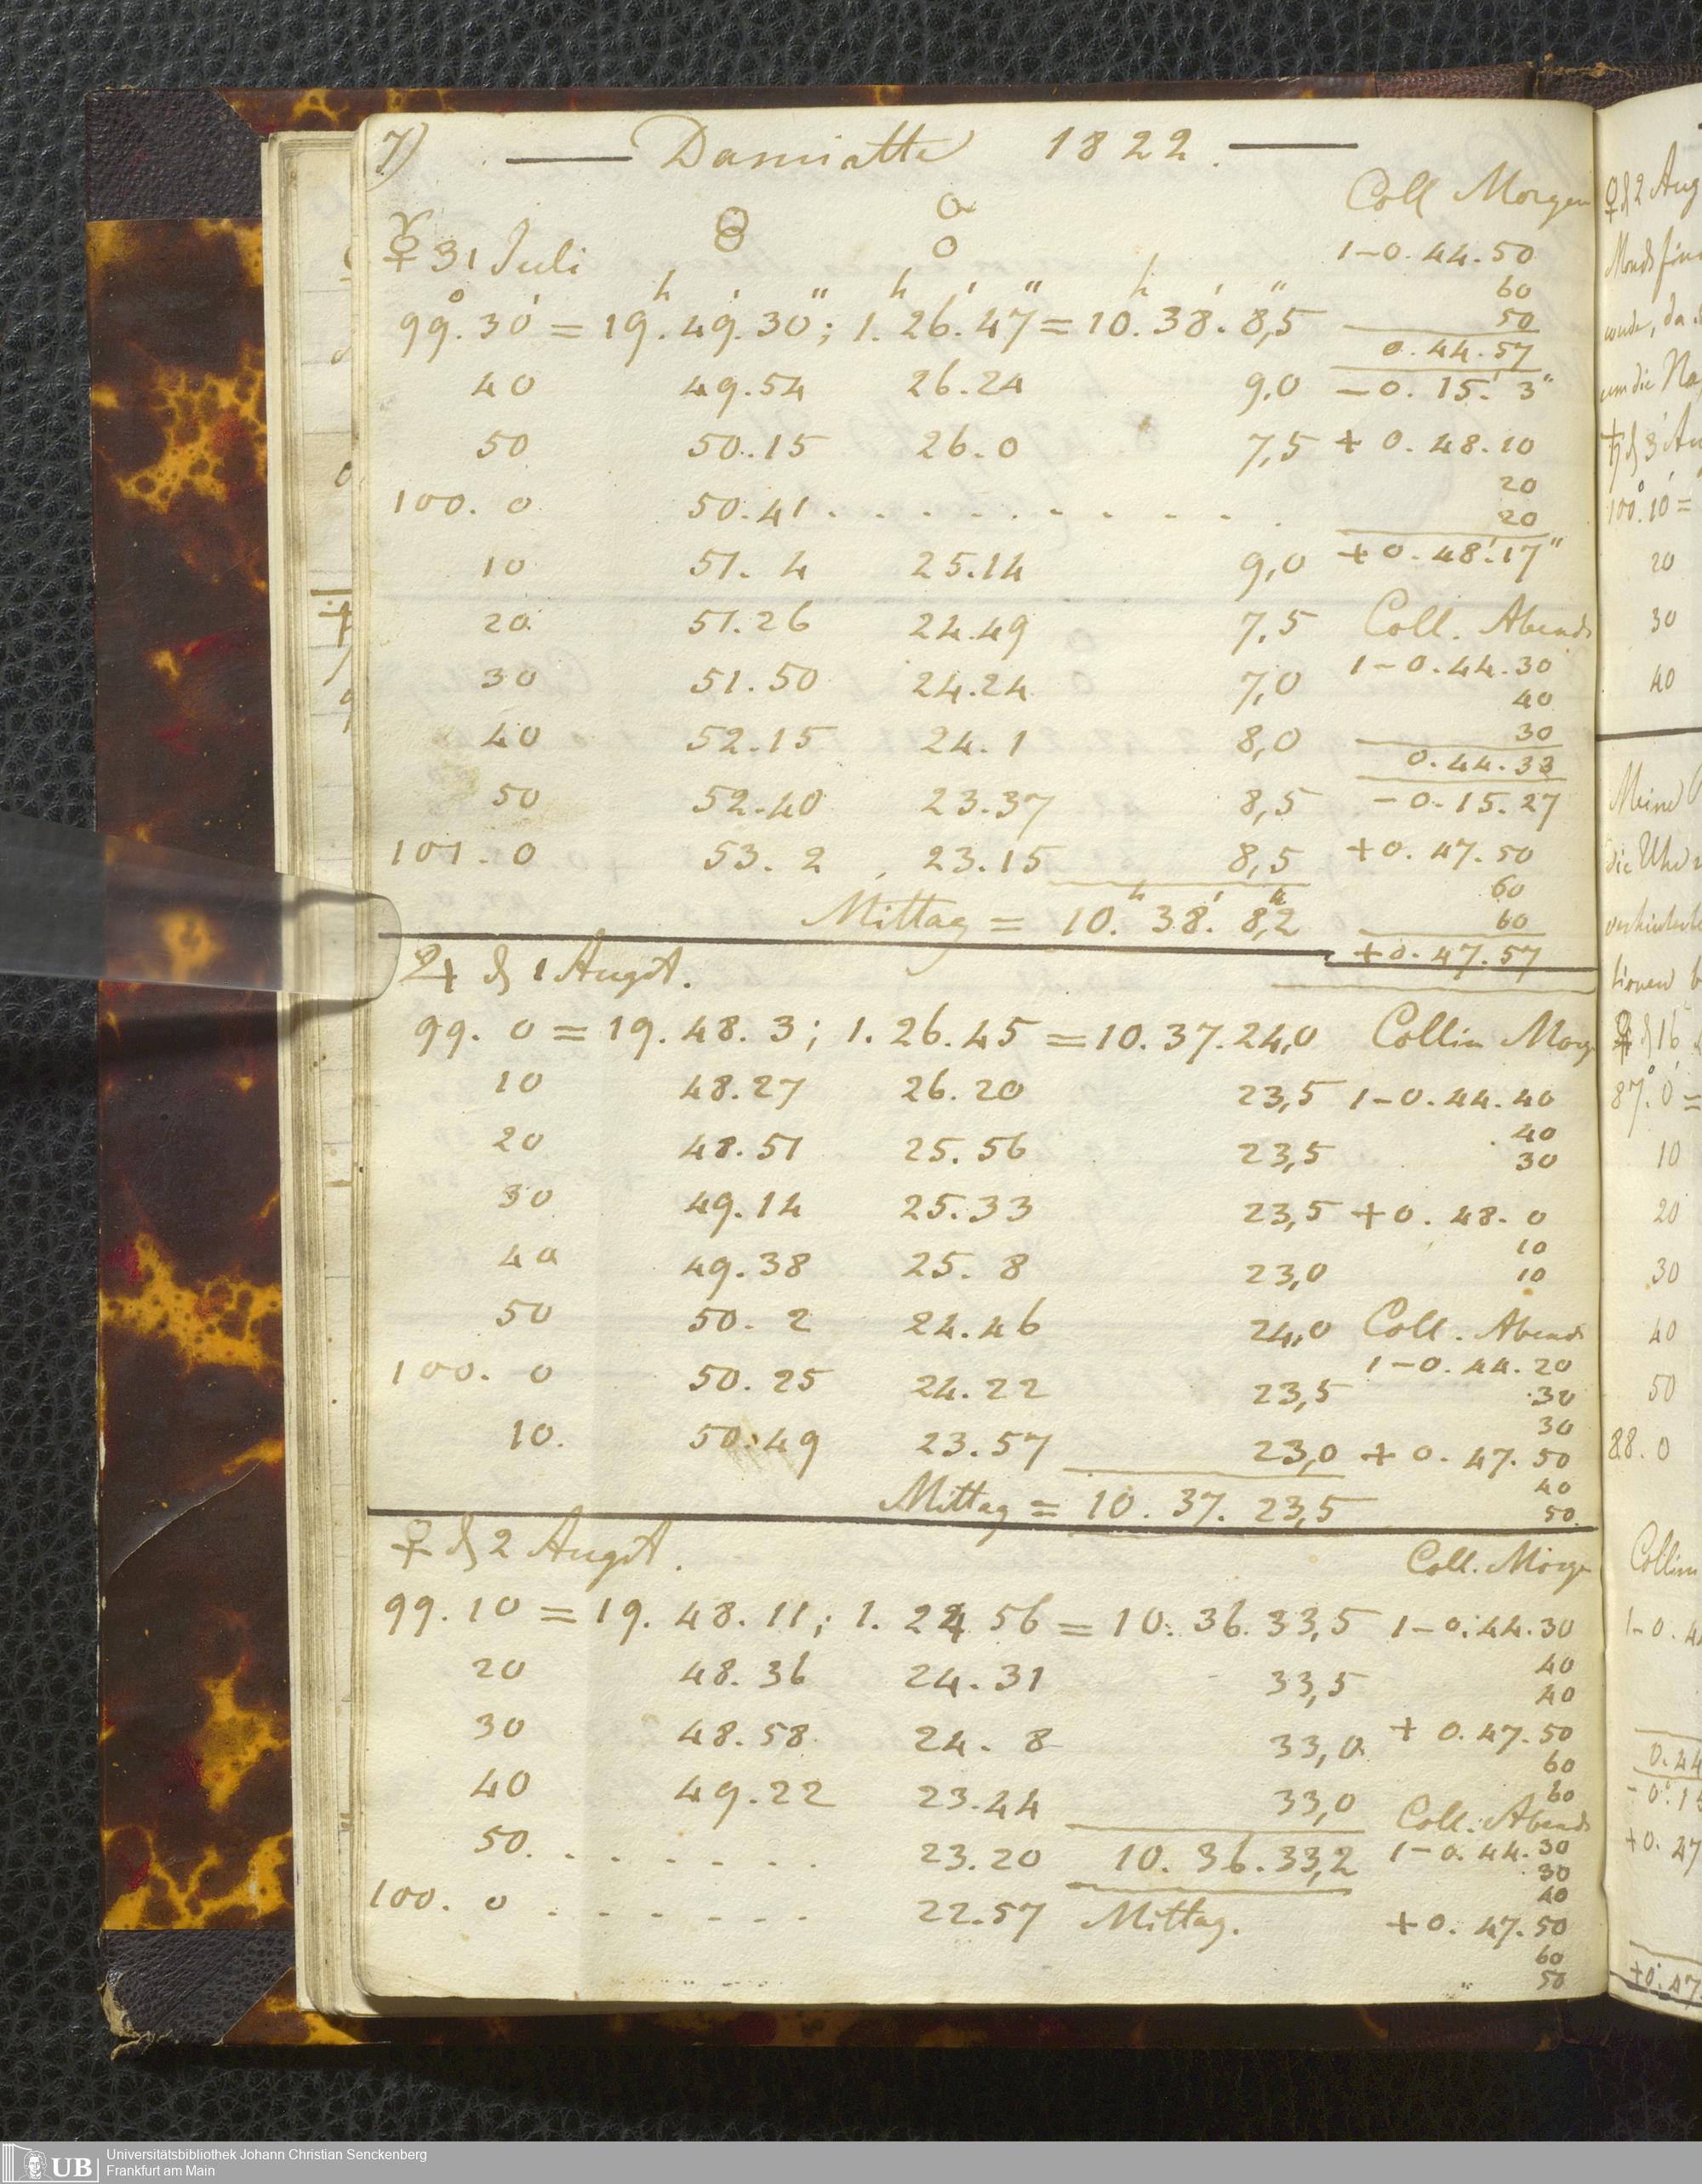 7) — Damiatte 1822. —
Coll Morgen
☿ 31 Juli
1-0.44.50
60
50
0.44.57
-0.15.'3"
99.°30' = 19.h49.'30"; 1.h26.'47" = 10.h38.'8,"5
40 49.54 26.24 9,0
50 50.15 26.0 7,5 +0.48.10
20
20
+0.48.'17"
100. 0 50.41 . . . . . . . . . .
10 51. 4 25.14 9,0
20 51.26 24.49 7,5 Coll. Abends
30 51.50 24.24 7,0 1-0.44.30
40
30
0.44.33
40 52.15 24. 1 8,0
50 52.40 23.37 8,5 -0.15.27
101. 0 53. 2 23.15 8,5 +0.47.50
60
60
+0.47.57
Mittag = 10.h38.'8,"2
♃ d 1 Augst.
99. 0 = 19.48. 3; 1.26.45 = 10.37.24,0 Collin Morg
10 48.27 26.20 23,5 1-0.44.40
40
30
20 48.51 25.56 23,5
30 49.14 25.33 23,5 +0.48. 0
10
10
40 49.38 25. 8 23,0
50 50. 2 24.46 24,0 Coll. Abends
1-0.44.20
30
30
100. 0 50.25 24.22 23,5
10. 50.49 23.57 23,0 +0.47.50
40
50.
Mittag = 10.37.23,5
♀ d 2 Augst.
Coll. Morge
99.10 = 19.48.11; 1.24 56 = 10.36.33,5 1-0.44.30
40
40
20 48.36 24.31 33,5
30 48.58 24. 8 33,0 +0.47.50
60
60
40 49.22 23.44 33,0
Coll. Abends
50. . . . . . . . 23.20 10.36.33,2 1-0.44.30
30
40
100. 0 . . . . . . 22.57 Mittag. +0.47.50
60
50
♀ d 2 Aug
Monds
wurde, da
um die Na
♄ d 3 Au
100.°10' =
20
30
40
Meine
die Uhr
verhinderte
d 16
87.°0' =
10
20
30
40
50
88. 0
Collim
1-0.4
0.44
+0.47
+0.47
UB Universitätsbibliothek Johann Christian Senckenberg
Frankfurt am Main